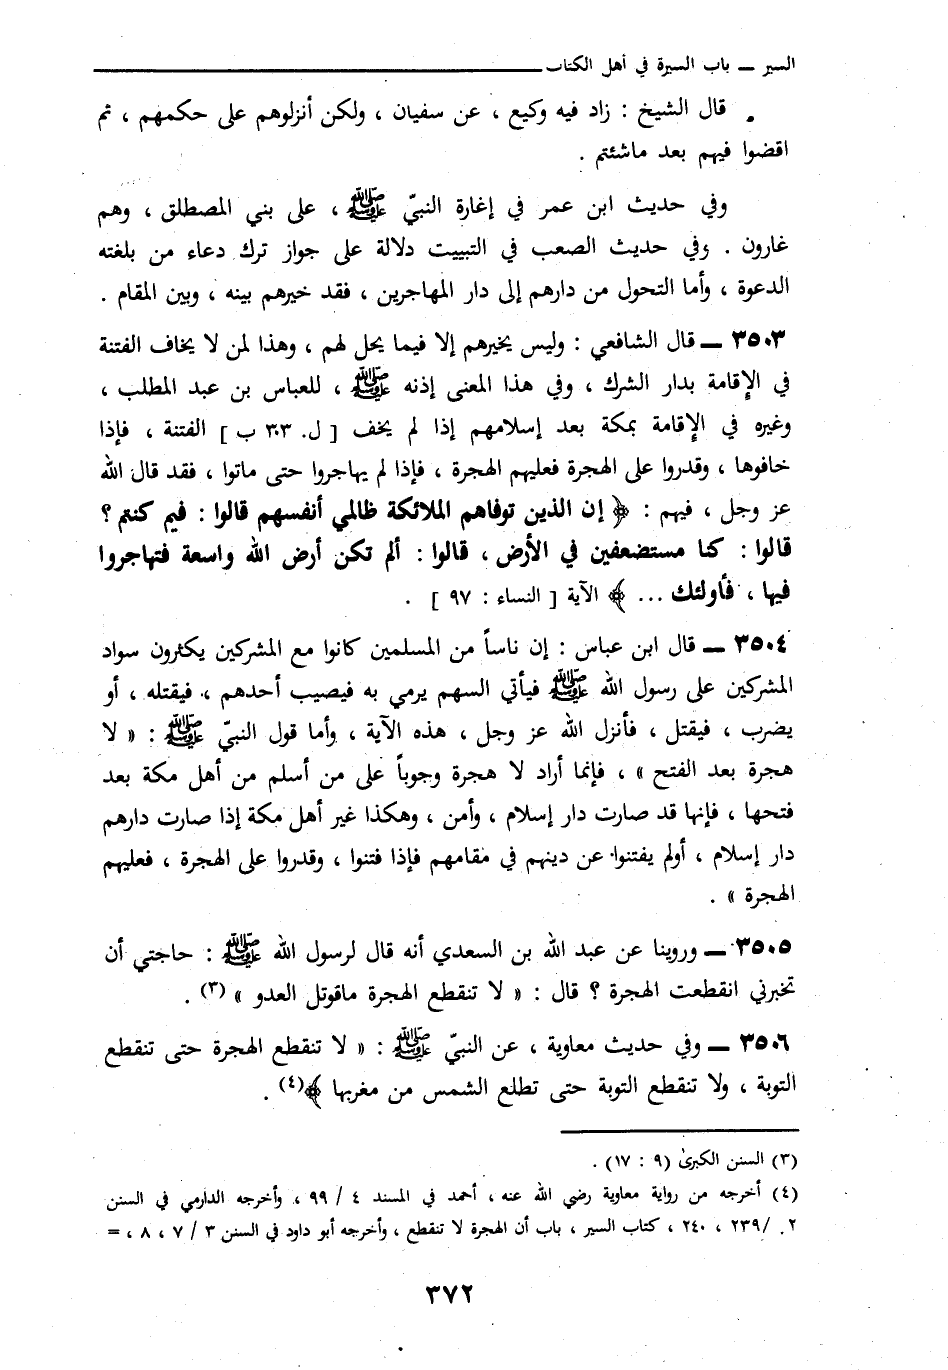 السير ــ باب السيرة في أهل الكتاب
قال الشيخ : زاد فيه وكيع ، عن سفيان ، ولكن أنزلوهم على حكمهم ، ثم
اقضوا فيهم بعد ماشئتم .
وفي حديث ابن عمر في إغارة النبيّ ﷺ ، على بني المصطلق ، وهم
غارون . وفي حديث الصعب في التبييت دلالة على جواز ترك دعاء من بلغته
الدعوة ، وأما التحول من دارهم إلى دار المهاجرين ، فقد خيرهم بينه ، وبين المقام .
٣٥٠٣ ــ قال الشافعي : وليس يخيرهم إلا فيما يحل لهم ، وهذا لمن لا يخاف الفتنة
في الإقامة بدار الشرك ، وفي هذا المعنى إذنه ﷺ ، للعباس بن عبد المطلب ،
وغيره في الإقامة بمكة بعد إسلامهم إذا لم يخف [ ل. ٣٠٣ ب ] الفتنة ، فإذا
خافوها ، وقدروا على الهجرة فعليهم الهجرة ، فإذا لم يهاجروا حتى ماتوا ، فقد قال الله
عز وجل ، فيهم : ﴿ إن الذين توفاهم الملائكة ظالمي أنفسهم قالوا : فيم كنتم ؟
قالوا : كنا مستضعفين في الأرض ، قالوا : ألم تكن أرض الله واسعة فتهاجروا
فيها ، فأولئك ... ﴾ الآية [ النساء : ٩٧ ] .
٣٥٠٤ ــ قال ابن عباس : إن ناساً من المسلمين كانوا مع المشركين يكثرون سواد
المشركين على رسول الله ﷺ فيأتي السهم يرمي به فيصيب أحدهم ، فيقتله ، أو
يضرب ، فيقتل ، فأنزل الله عز وجل ، هذه الآية ، وأما قول النبيّ ﷺ : « لا
هجرة بعد الفتح » ، فإنما أراد لا هجرة وجوباً على من أسلم من أهل مكة بعد
فتحها ، فإنها قد صارت دار إسلام ، وأمن ، وهكذا غير أهل مكة إذا صارت دارهم
دار إسلام ، أولم يفتنوا عن دينهم في مقامهم فإذا فتنوا ، وقدروا على الهجرة ، فعليهم
الهجرة » .
٣٥٠٥ ــ وروينا عن عبد الله بن السعدي أنه قال لرسول الله ﷺ : حاجتي أن
تخبرني انقطعت الهجرة ؟ قال : « لا تنقطع الهجرة ماقوتل العدو » (٣) .
٣٥٠٦ ــ وفي حديث معاوية ، عن النبيّ ﷺ : « لا تنقطع الهجرة حتى تنقطع
التوبة ، ولا تنقطع التوبة حتى تطلع الشمس من مغربها ﴾(٤) .
(٣) السنن الكبرىٰ (٩ : ١٧) .
(٤) أخرجه من رواية معاوية رضي الله عنه ، أحمد في المسند ٤ / ٩٩ ، وأخرجه الدارمي في السنن
٢ . /٢٣٩ ، ٢٤٠ ، كتاب السير ، باب أن الهجرة لا تنقطع ، وأخرجه أبو داود في السنن ٣ / ٧ ، ٨ ، =
٣٧٢